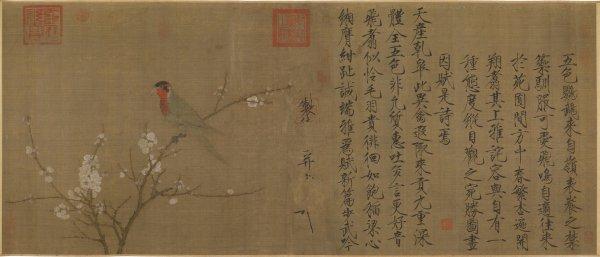 五色鸚鵡來自嶺表養之禁
籞馴服可愛飛鳴自適往來
於苑囿間方中春繁杏遍開
翔翥其上雅詫容與自有一
種態度縱目觀之宛勝圖畫
因賦是詩焉
天產乾皋此異禽遐陬來貢九重深
體全五色非凡質惠吐多言更好音
飛翥似怜毛羽貴徘徊如飽稻粱心
緗膺紺趾誠端雅為賦新篇步武吟
製